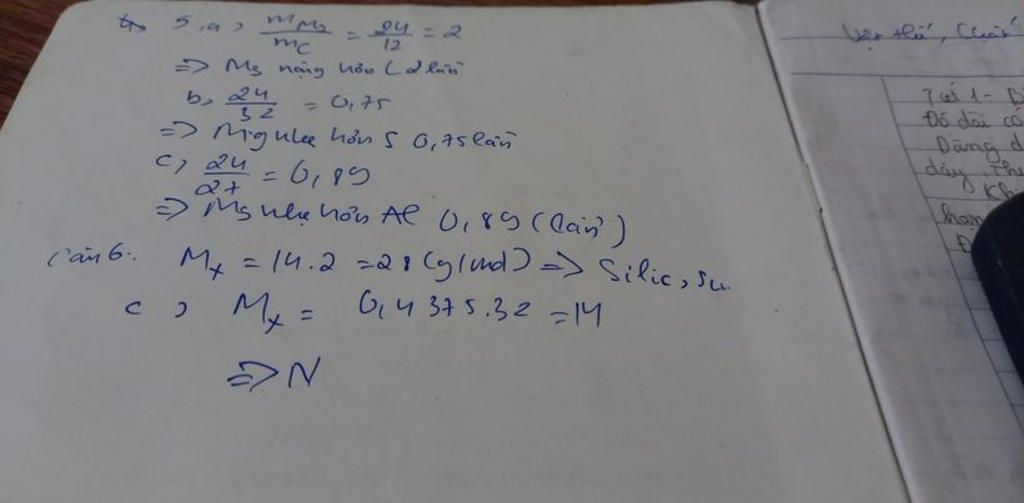 5.a, m Mg / m C = 24/12 = 2
=> Mg nặng hơn C 2 lần
b, 24/32 = 0,75
=> Mg nhẹ hơn S 0,75 lần
c, 24/27 = 0,89
=> Mg nhẹ hơn Al 0,89 (lần)
Câu 6: Mx = 14.2 = 28 (g/mol) => Silic,
c, Mx = 0,4375.32 = 14
=> N
Vật thể, Chất
Tiết 1 - 
Đo dài
Dạng
dây
Kh